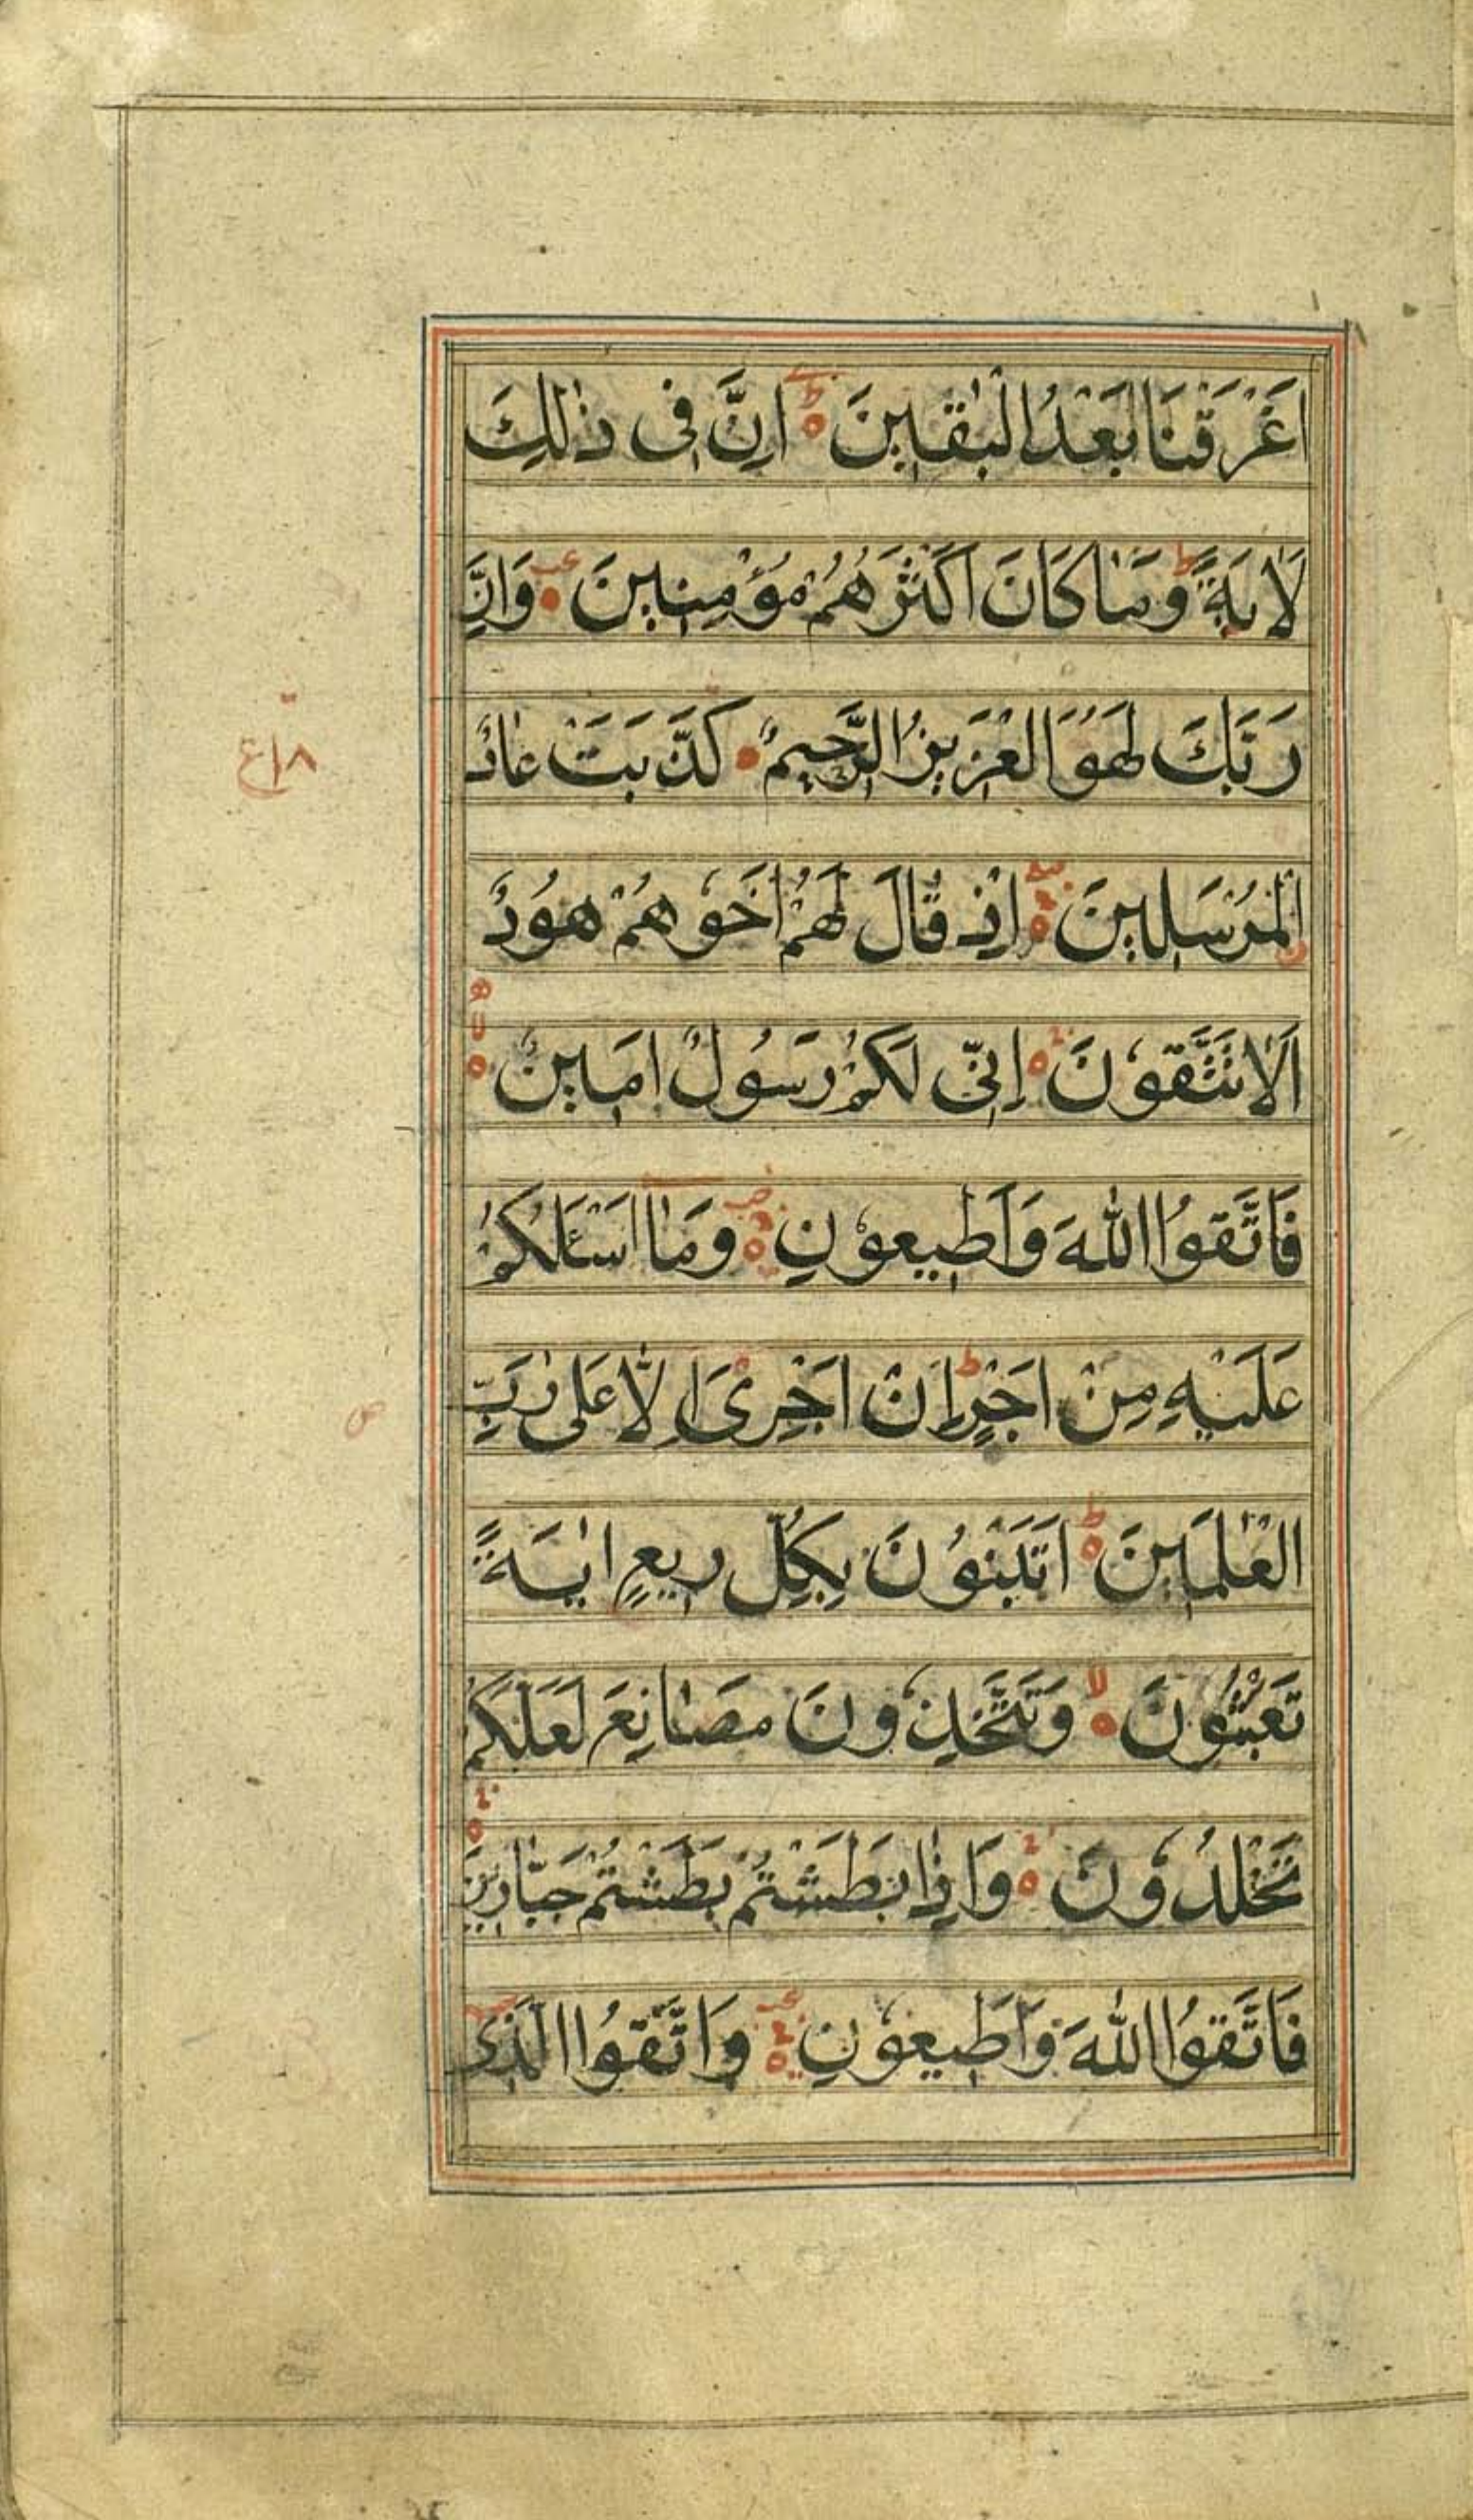 اَغْرَقْنَا بَعْدُ الْبٰقِيْنَ اِنَّ فِى ذٰلِكَ
لَاٰيَةً وَمَا كَانَ اَكْثَرُهُمْ مُؤْمِنِيْنَ وَاِنَّ
رَبَّكَ لَهُوَ الْعَزِيْزُ الرَّحِيْمُ كَذَّبَتْ عَادُ
۱۸ع
الْمُرْسَلِيْنَ اِذْ قَالَ لَهُمْ اَخُوْهُمْ هُوْدٌ
اَلَا تَتَّقُوْنَ اِنِّى لَكُمْ رَسُوْلٌ اَمِيْنٌ
فَاتَّقُوا اللّٰهَ وَاَطِيْعُوْنِ وَمَا اَسْئَلُكُمْ
عَلَيْهِ مِنْ اَجْرٍ اِنْ اَجْرِىَ اِلَّا عَلٰى رَبِّ
الْعٰلَمِيْنَ اَتَبْنُوْنَ بِكُلِّ رِيْعٍ اٰيَةً
تَعْبَثُوْنَ وَتَتَّخِذُوْنَ مَصَانِعَ لَعَلَّكُمْ
تَخْلُدُوْنَ وَاِذَا بَطَشْتُمْ بَطَشْتُمْ جَبَّارِيْنَ
فَاتَّقُوا اللّٰهَ وَاَطِيْعُوْنِ وَاتَّقُوا الَّذِى